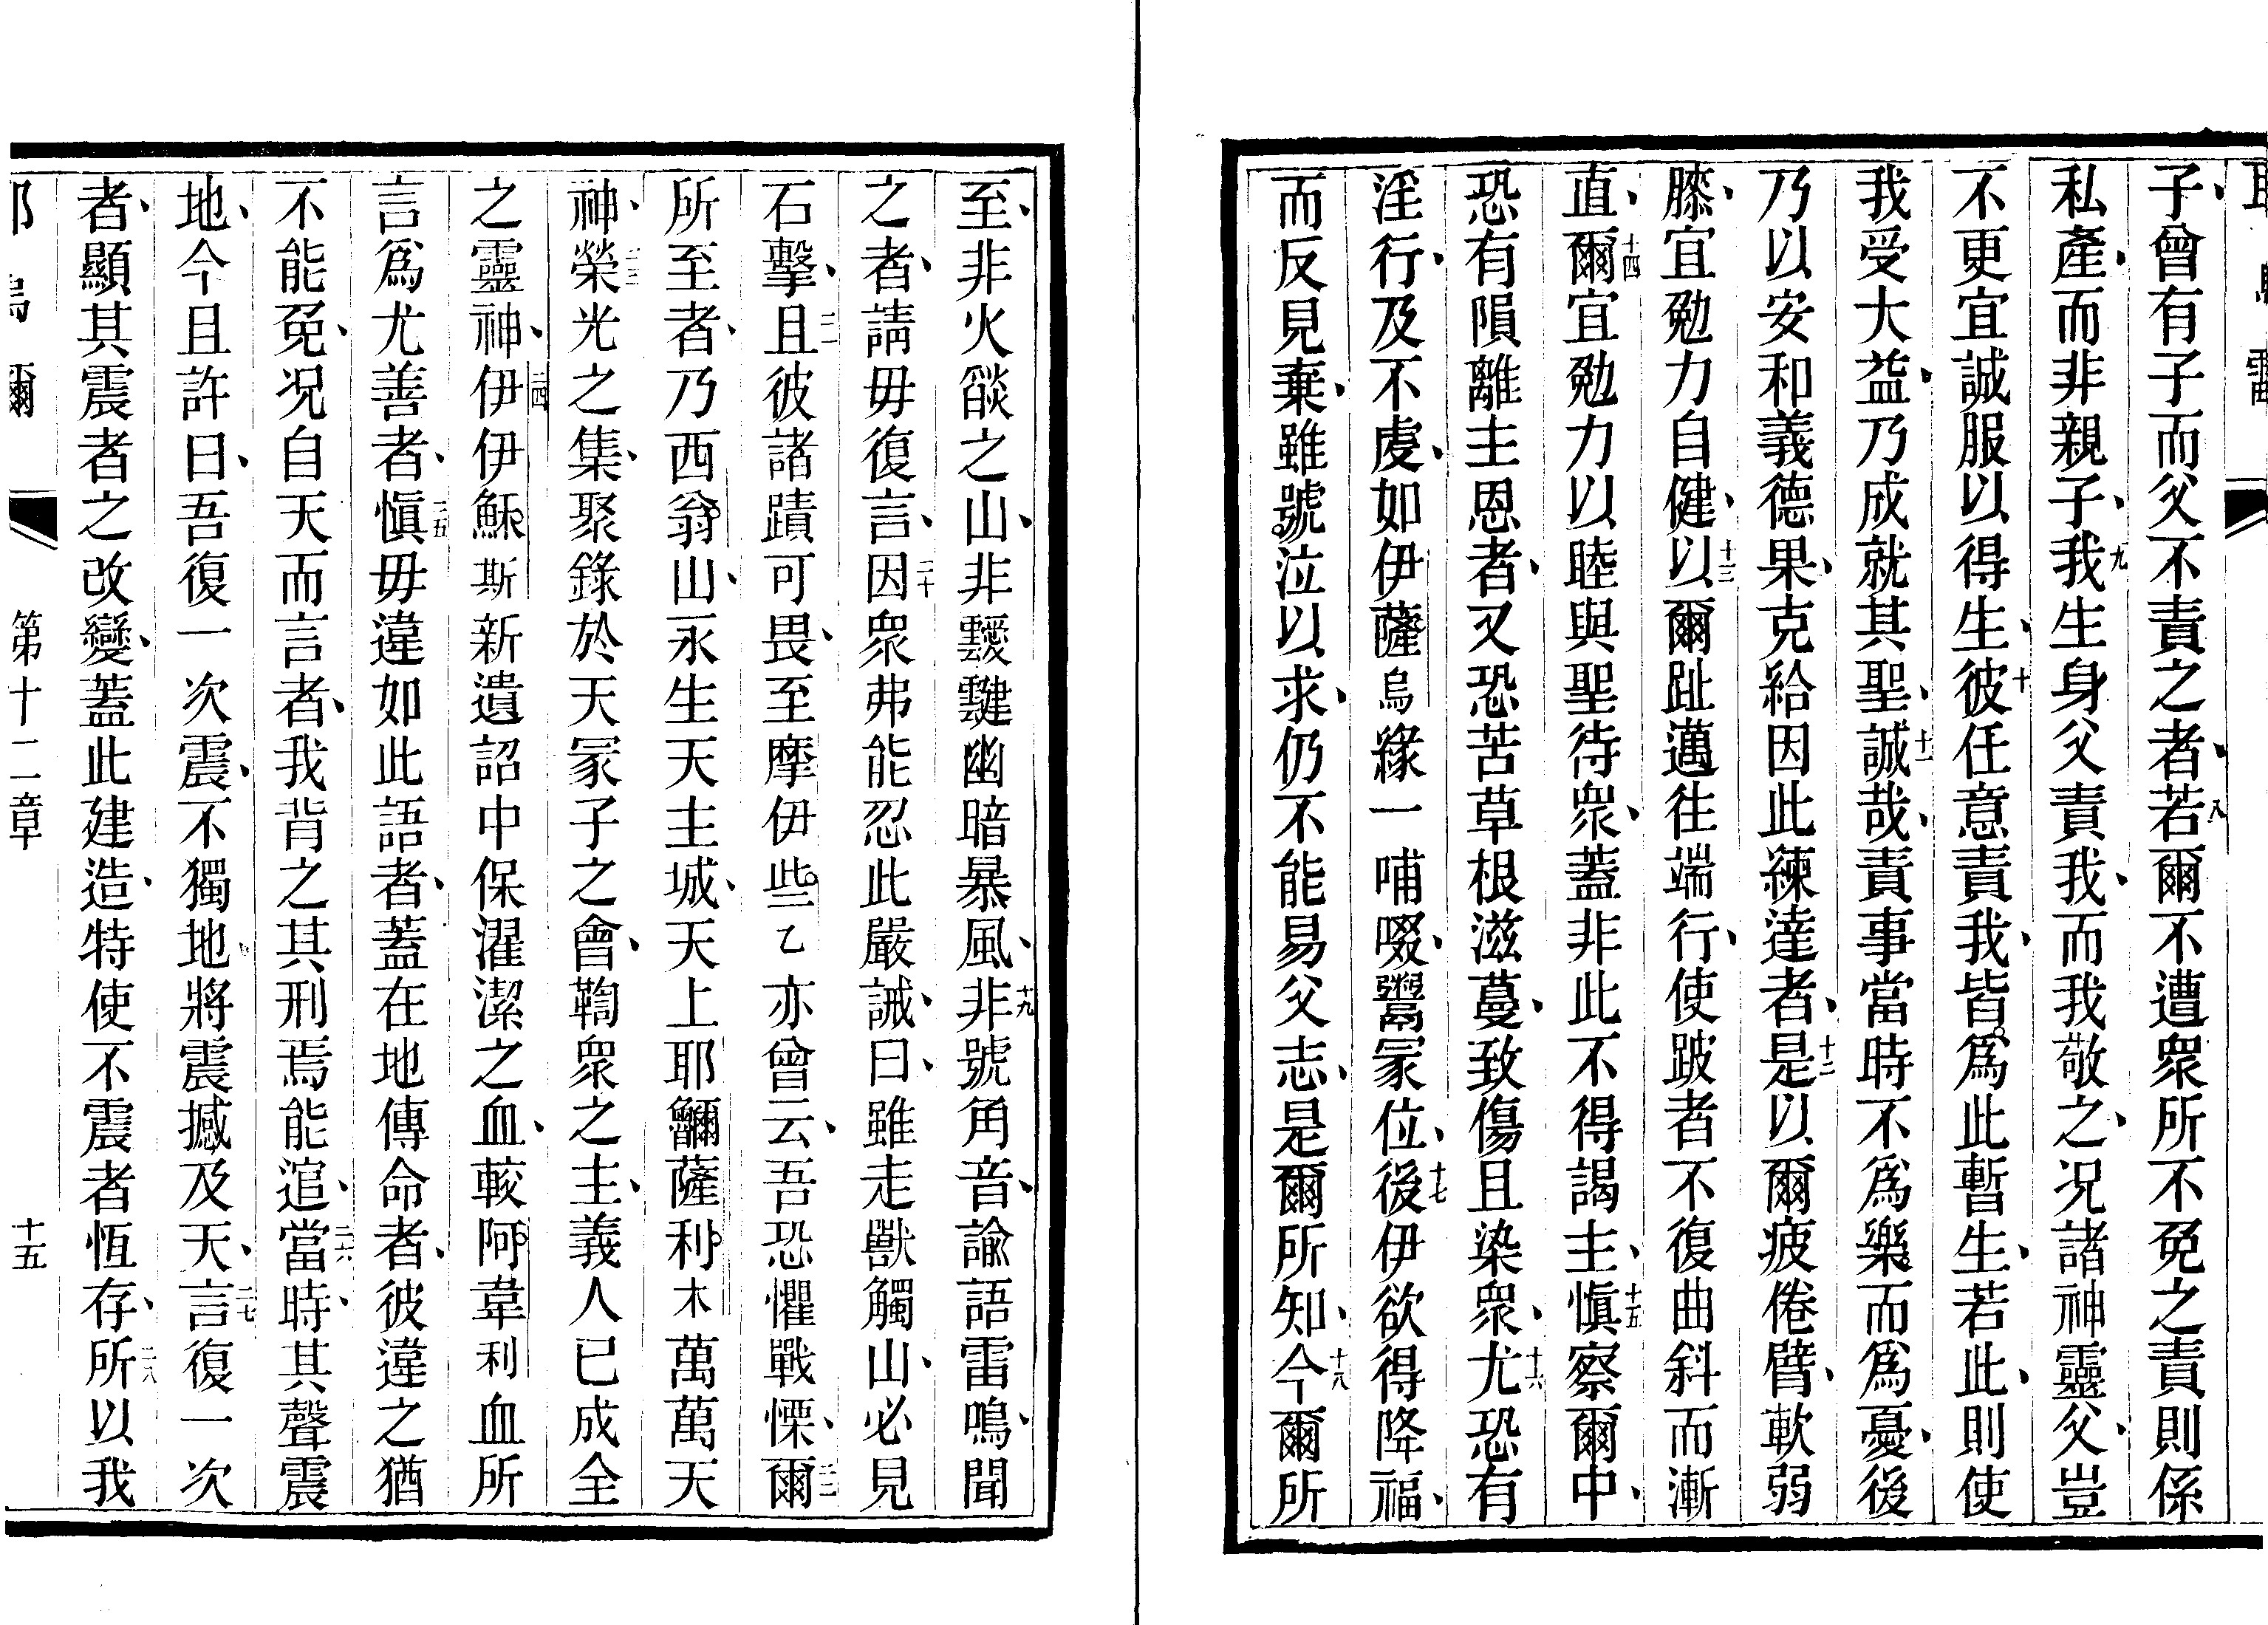 子、曾有子而父不責之者、八若爾不遭衆所不免之責則係
私產、而非親子、九我生身父責我、而我敬之、况諸神靈父、豈
不更宜誠服以得生、十彼任意責我、皆爲此暫生、若此、則使
我受大益、乃成就其聖、十一誠哉、責事當時不爲樂而爲憂、後
乃以安和義德果、克給因此練達者、十二是以爾疲倦臂、軟弱
膝、宜勉力自健、十三以爾趾邁往端行、使跛者不復曲斜而漸
直、十四爾宜勉力以睦與聖待衆、蓋非此不得謁主、十五愼察爾中、
恐有隕離主恩者、又恐苦草根滋蔓、致傷且染衆、十六尤恐有
淫行、及不虔、如伊薩烏緣一哺啜、鬻冢位、十七後伊欲得降福、
而反見棄、雖號泣以求、仍不能易父志、是爾所知、十八今爾所
至、非火燄之山、非靉靆幽暗暴風、十九非號角音、諭語雷鳴、聞
之者、請毋復言、二十因衆弗能忍此嚴誡、曰、雖走獸觸山、必見
石擊、二一且彼諸蹟可畏、至摩伊些乙亦曾云、吾恐懼戰慄、二二爾
所至者、乃西翁山、永生天主城、天上耶龥薩利木萬萬天
神、二三榮光之集、聚錄於天冢子之會、鞫衆之主、義人已成全
之靈神、二四伊伊穌斯新遺詔中保濯潔之血、較阿韋利血所
言爲尤善者、二五愼毋違如此語者、蓋在地傳命者、彼違之猶
不能免、况自天而言者、我背之其刑焉能逭、二六當時、其聲震
地、今且許曰、吾復一次震、不獨地、將震撼及天、二七言復一次
者、顯其震者之改變、蓋此建造、特使不震者恆存、二八所以我
第十二章　十五